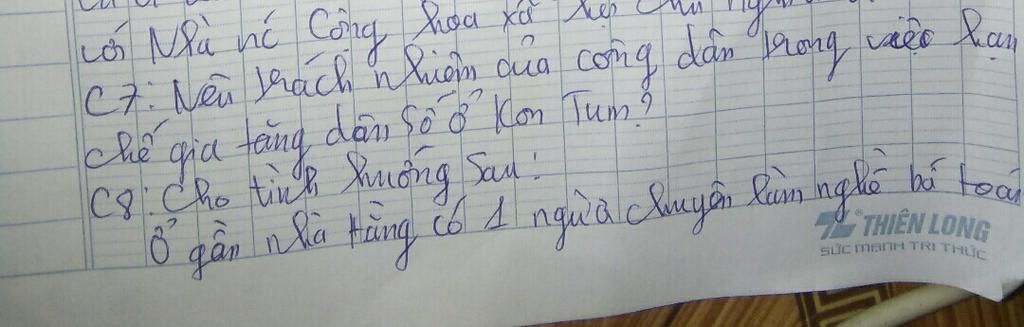 với Nhà nc Cộng hòa xã
C7: Nêu trách nhiệm của công dân trong việc hạn
chế gia tăng dân số ở Kon Tum?
C8: Cho tình huống sau:
Ở gần nhà Hằng có 1 người chuyên làm nghề bói toán
THIÊN LONG
SỨC MẠNH TRI THỨC